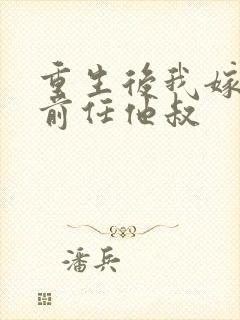 重生後我嫁
前任他叔
潘兵